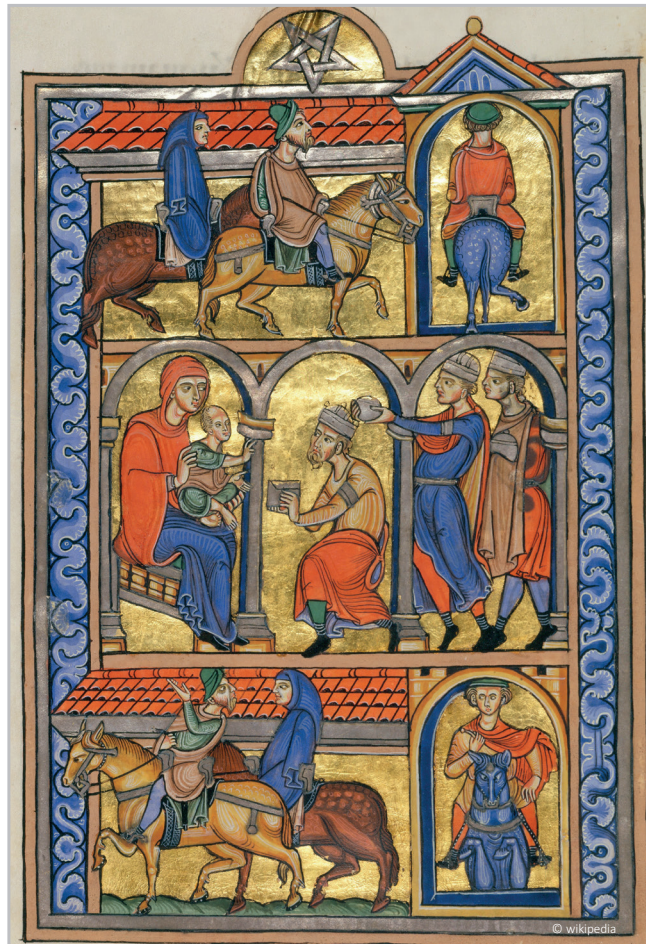 © wikipedia